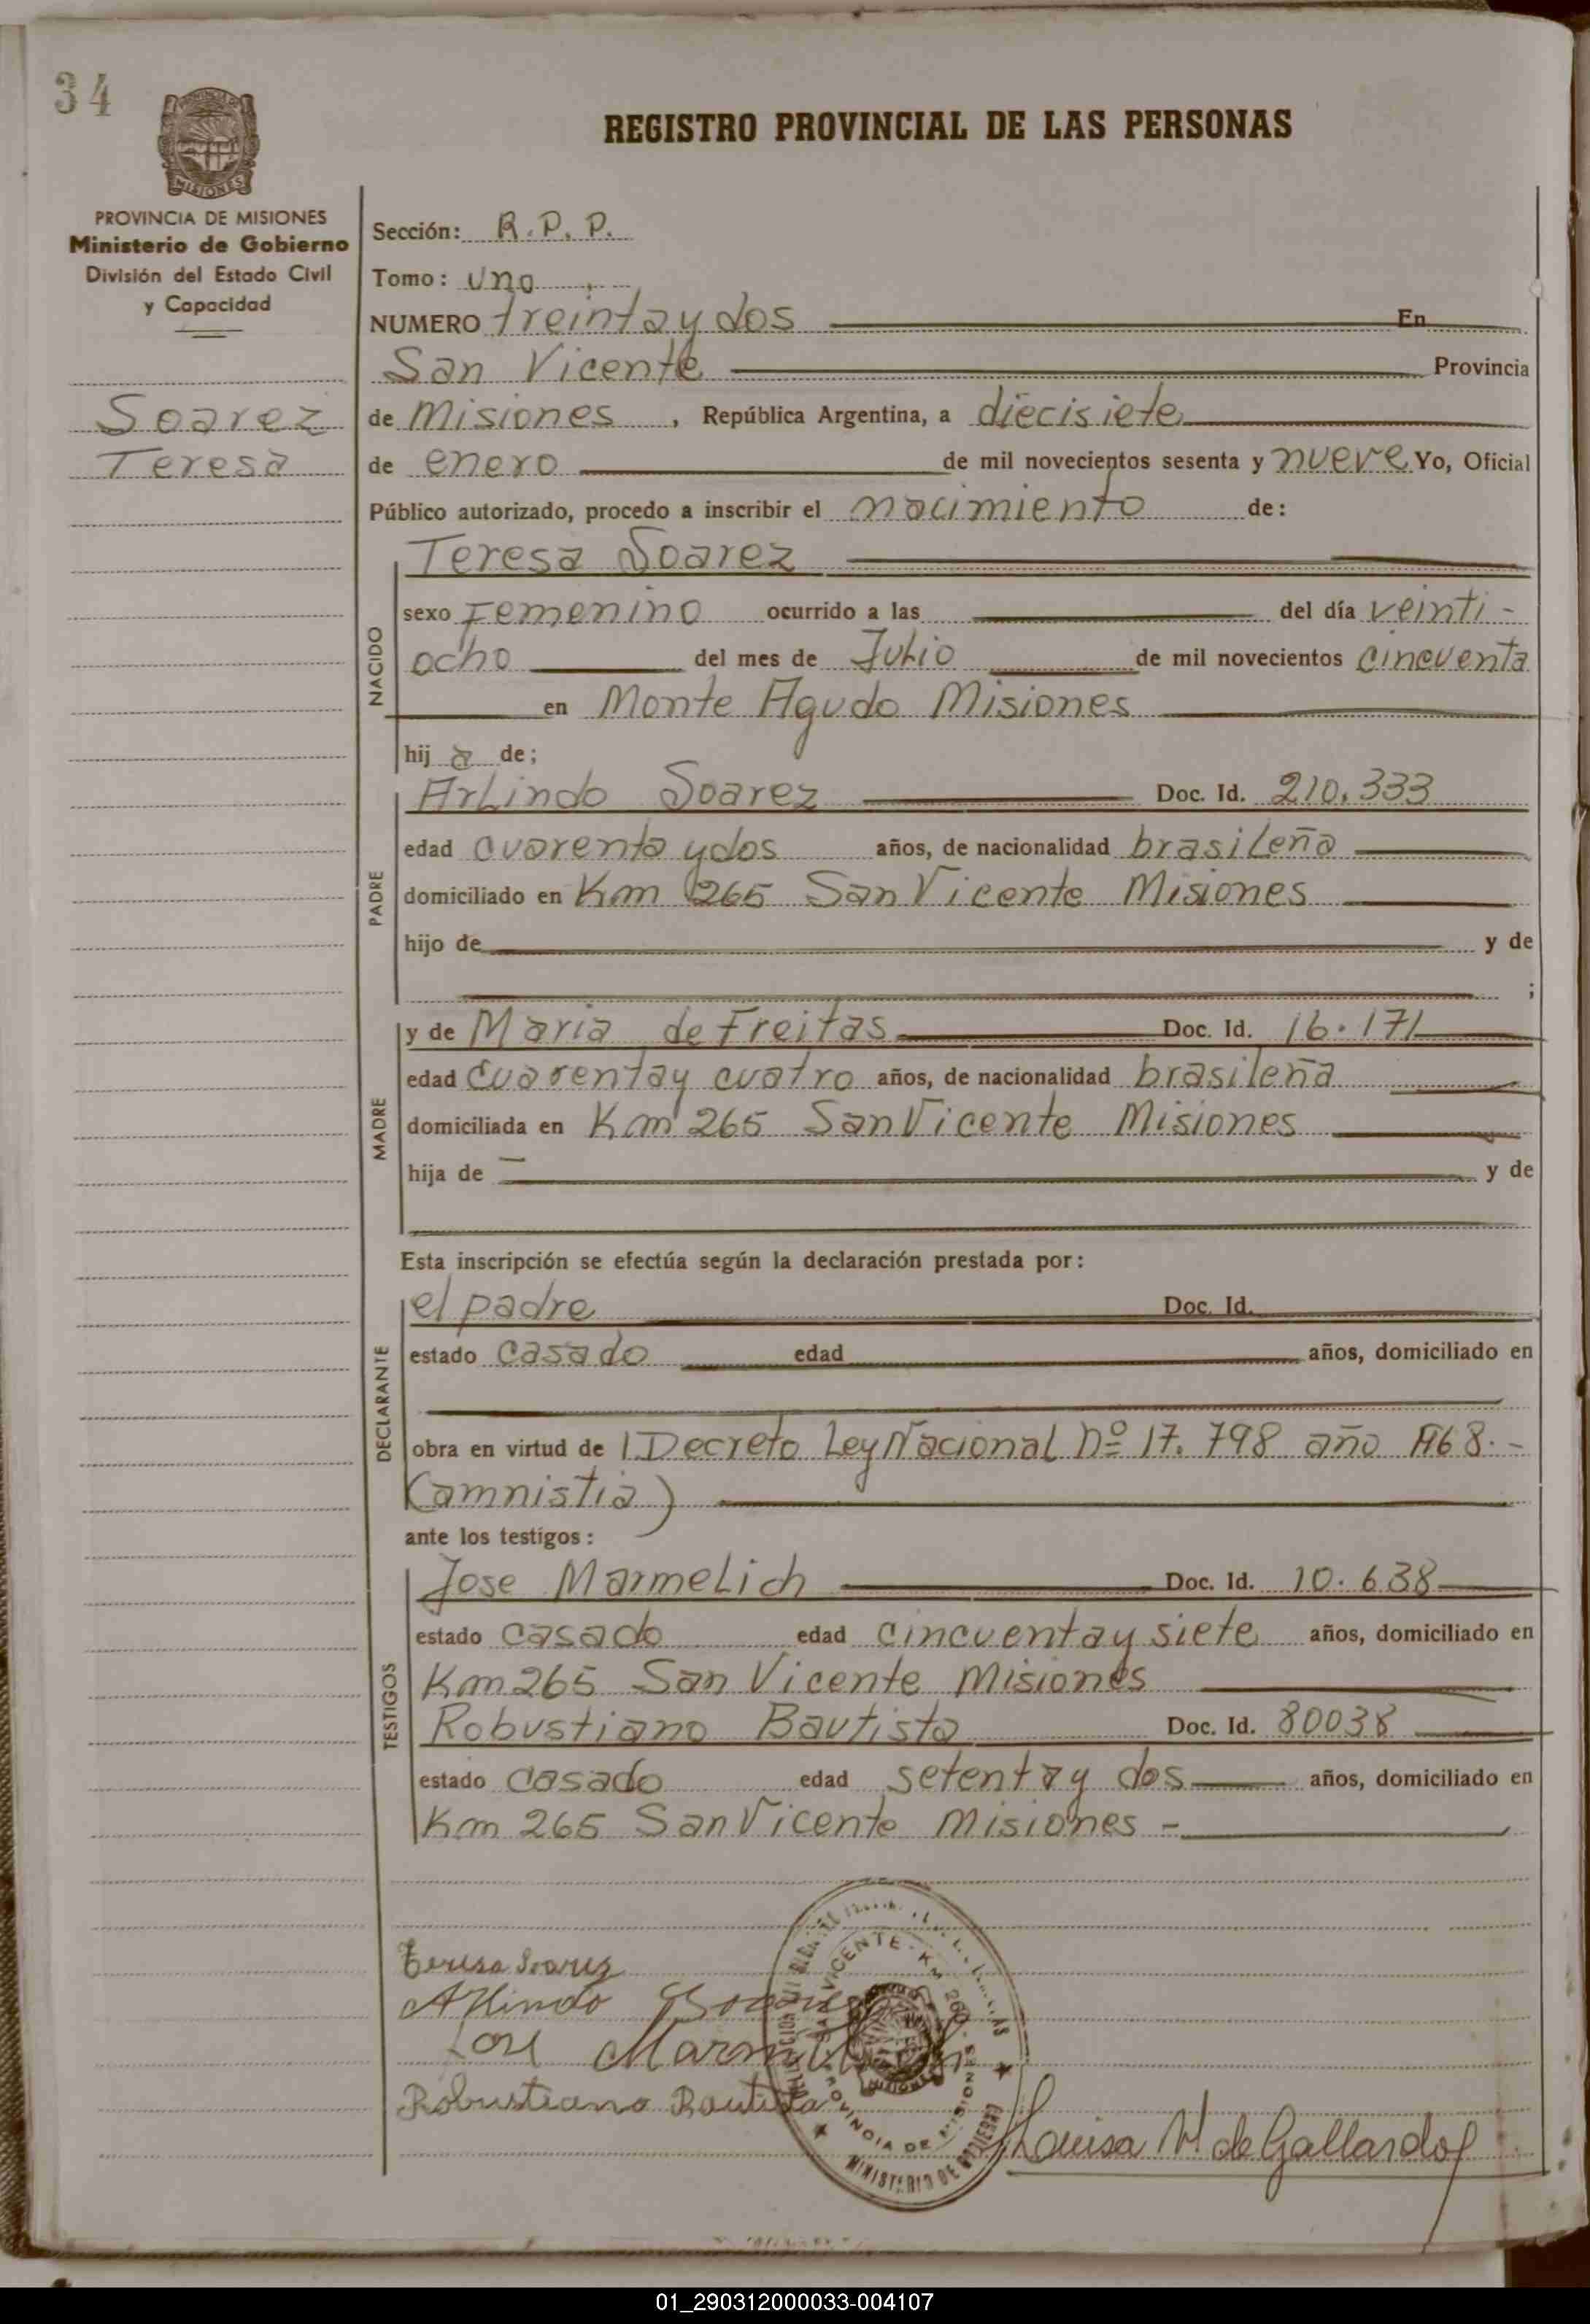 34
PROVINCIA DE MISIONES
Ministerio de Gobierno
División del Estado Civil
y Capacidad
Soarez
Teresa
REGISTRO PROVINCIAL DE LAS PERSONAS
Sección: R.P.P.
Tomo: uno
NUMERO treinta y dos En
San Vicente Provincia
de Misiones, República Argentina, a diecisiete
de enero de mil novecientos sesenta y nueve Yo, Oficial
Público autorizado, procedo a inscribir el nacimiento de:
NACIDO
Teresa Soarez
sexo Femenino ocurrido a las del día veinti-
ocho del mes de Julio de mil novecientos cincuenta
en Monte Agudo Misiones
hija de;
PADRE
Arlindo Soarez Doc. Id. 210.333
edad cuarenta y dos años, de nacionalidad brasileña
domiciliado en Km 265 San Vicente Misiones
hijo de y de
;
MADRE
y de Maria de Freitas Doc. Id. 16.171
edad cuarenta y cuatro años, de nacionalidad brasileña
domiciliada en Km 265 San Vicente Misiones
hija de y de
Esta inscripción se efectúa según la declaración prestada por:
DECLARANTE
el padre Doc. Id.
estado casado edad años, domiciliado en
obra en virtud de l Decreto Ley Nacional nº 17.798 año 1968.-
(amnistia)
ante los testigos:
TESTIGOS
Jose Marmelich Doc. Id. 10.638
estado casado edad cincuenta y siete años, domiciliado en
Km 265 San Vicente Misiones
Robustiano Bautista Doc. Id. 80038
estado casado edad setenta y dos años, domiciliado en
Km 265 San Vicente Misiones -
Teresa Soarez
Arlindo Soarez
Jose Marmelich
Robustiano Bautista
SAN VICENTE - KM
PROVINCIA DE MISIONES
MINISTERIO DE
MISIONES
Louisa M de Gallardo
01_290312000033-004107